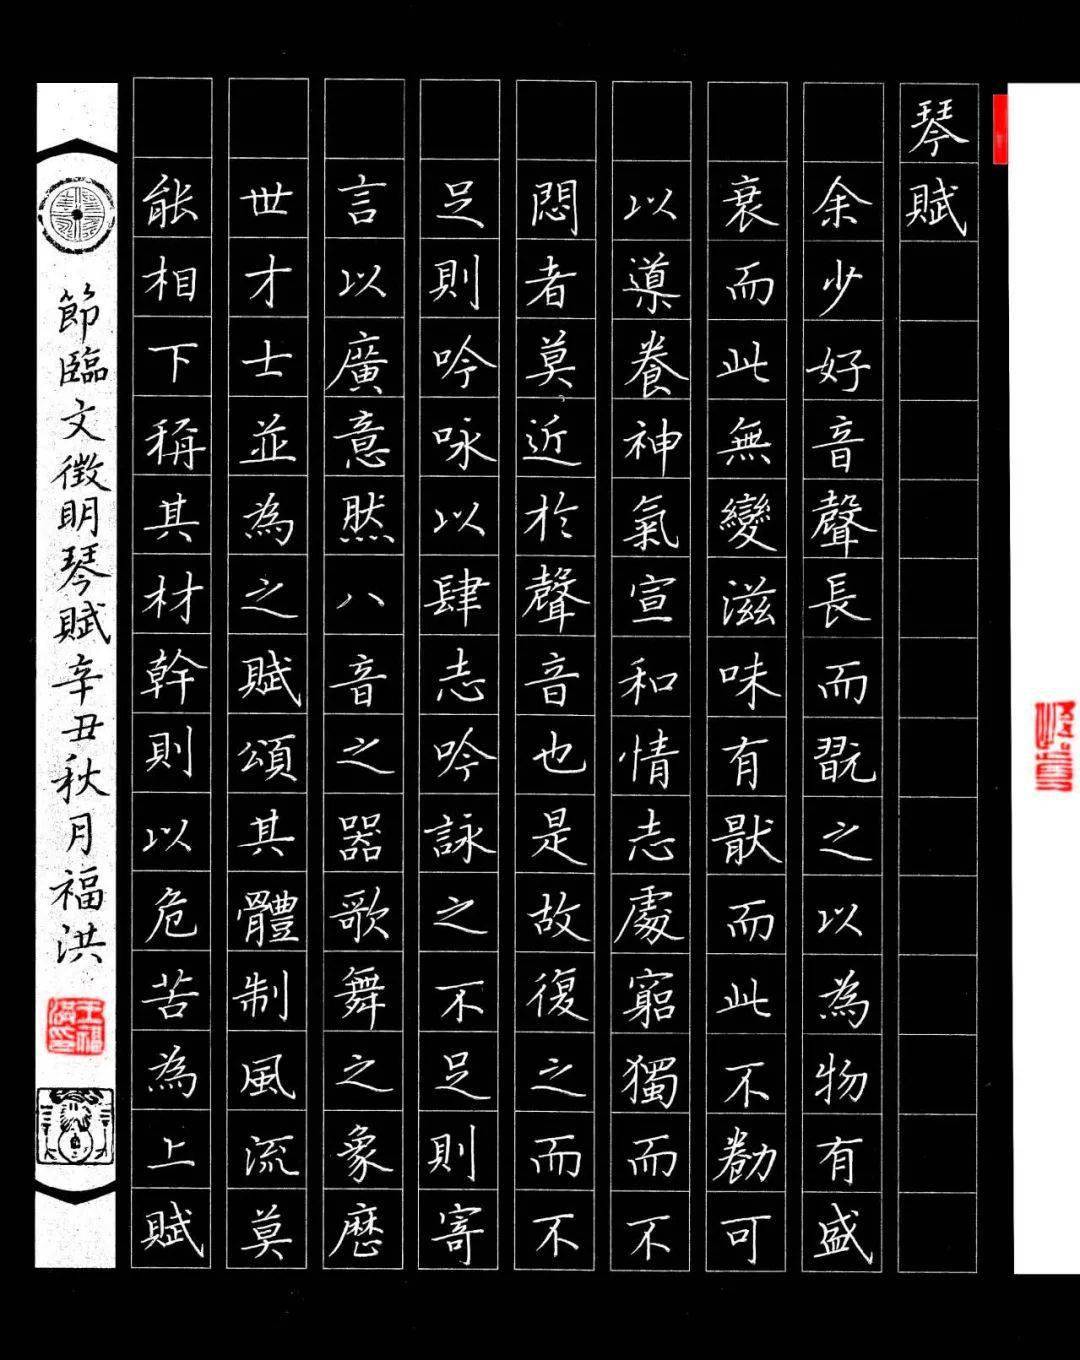 琴賦
余少好音聲長而翫之以為物有盛
衰而此無變滋味有猒而此不勌可
以導養神氣宣和情志處窮獨而不
悶者莫近於聲音也是故復之而不
足則吟咏以肆志吟詠之不足則寄
言以廣意然八音之器歌舞之象歷
世才士並為之賦頌其體制風流莫
能相下稱其材幹則以危苦為上賦
節臨文徵明琴賦辛丑秋月福洪
王福洪印